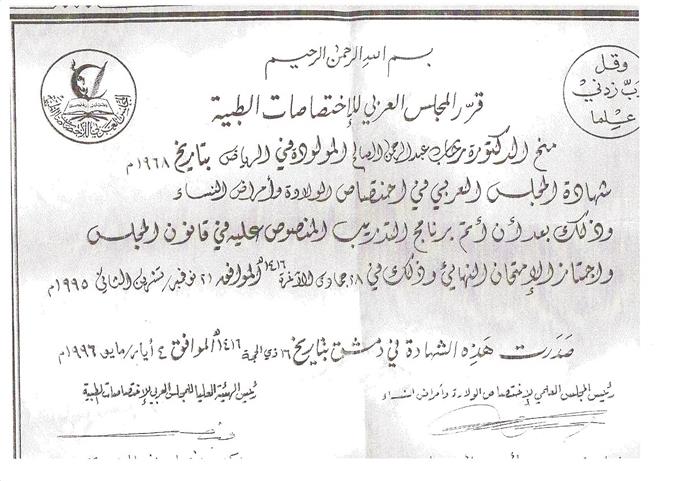 بسم الله الرحمن الرحيم
وقل
رب زدني
علما
قرر المجلس العربي للإختصاصات الطبية
منح الدكتورة عبدالرحمن الصالح المولودة في الرياض بتاريخ ١٩٦٨م
شهادة المجلس العربي في اختصاص الولادة وأمراض النساء
وذلك بعد أن أتم برنامج التدريب المنصوص عليه في قانون المجلس
واجتاز الإمتحان النهائي وذلك في ٢٨ جمادى الآخرة ١٤١٦هـ الموافق ٢١ نوفمبر/تشرين الثاني ١٩٩٥م
صدرت هذه الشهادة في دمشق بتاريخ ١٦ ذي الحجة ١٤١٦هـ الموافق ٤ أيار/مايو ١٩٩٦م
رئيس المجلس العلمي لإختصاص الولادة وأمراض النساء
رئيس الهيئة العليا للمجلس العربي للإختصاصات الطبية